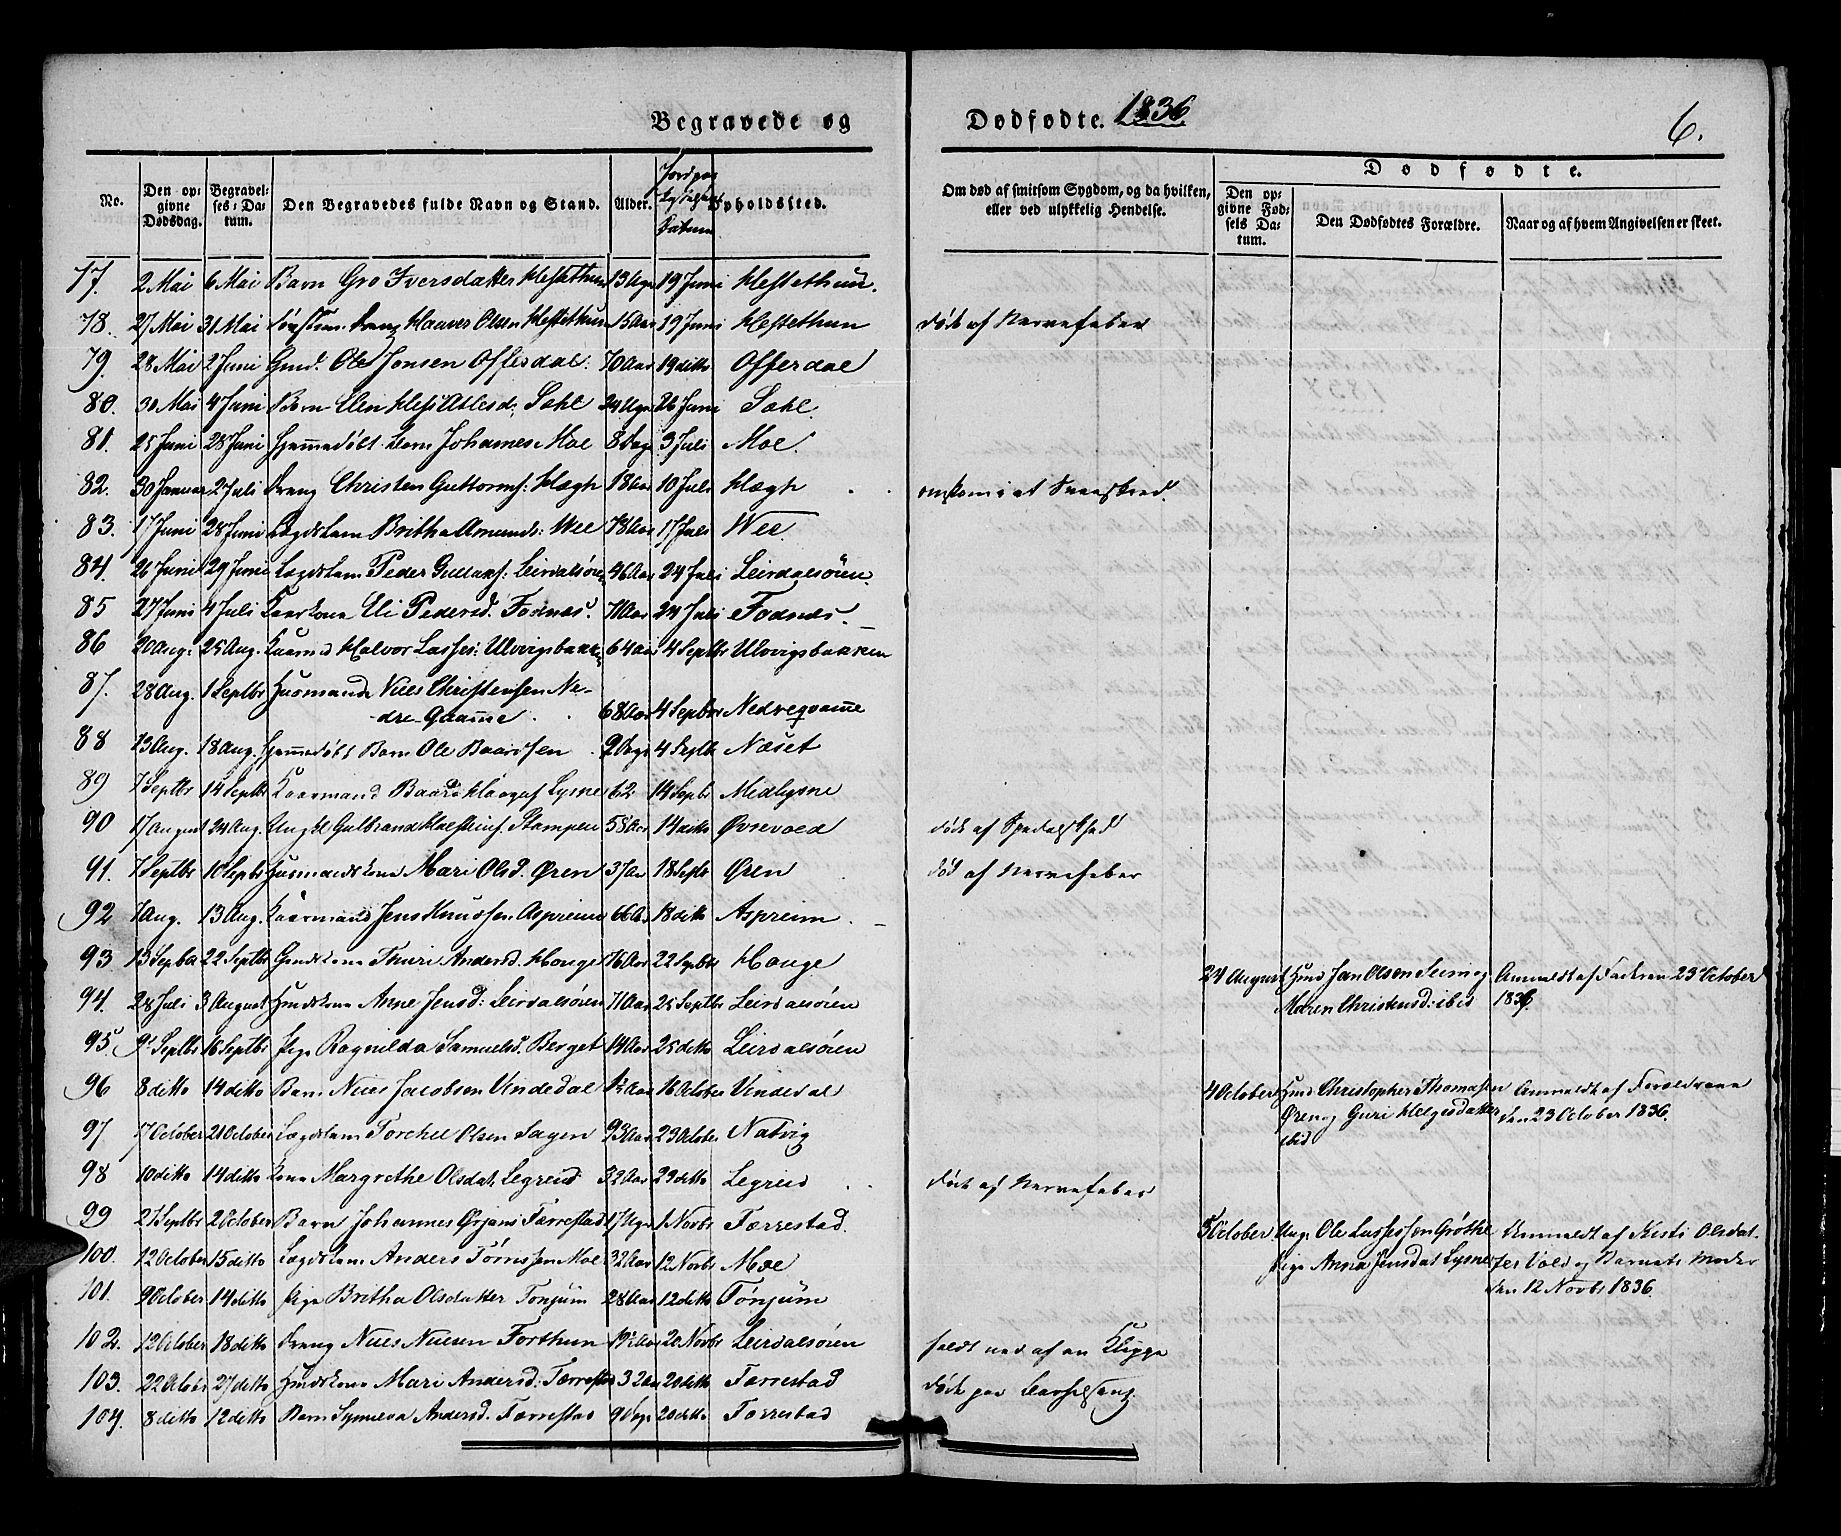 Begravede og Dødfødte. 1836
6.
No. | Den opgivne Dødsdag. | Begravelses-Datum. | Den Begravedes fulde Navn og Stand. | Alder. | Jordpaa- Datum | Opholdssted. | Om død af smitsom Sygdom, og da hvilken, eller ved ulykkelig Hendelse.
Dødfødte.
Den opgivne Fødsels Datum. | Den Dødfødtes Forældre. | Naar og af hvem Angivelsen er skeet.
77. 2 Mai 6 Mai Barn Gro Iversdatter Hestethun 13 Uger 19 Juni Hestethun.
78. 27 Mai 31 Mai Dreng Haaver Olsen Hestethun 15 Aar 19 Juni Hestethun død af Nervefeber
79. 28 Mai 2 Juni Gmd. Ole Jonsen Offerdal. 70 Aar 19 ditto Offerdal
80. 30 Mai 4 Juni Barn Elen Atlesd: Sæhl 24 Uger 26 Juni Sæhl.
81. 25 Juni 28 Juni Hjemmedøbt Barn Johannes Moe 8 Dage 3 Juli Moe.
82. 30 Januar 2 Juli Dreng Christen Guttorms: Hægh 18 Aar 10 Juli Hægh omkom i et Sneeskred.
83. 17 Juni 28 Juni Lægdslem Britha Amunds: Wee 78 Aar 17 Juli Wee.
84. 26 Juni 29 Juni Lægdslem Peder Gullaks: Leirdalsören 46 Aar 24 Juli Leirdalsören.
85 27 Juni 4 Juli Kaarkone Eli Pedersd. Fodnæs. 71 Aar 24 Juli Fodnæs.
86 20 Aug: 25 Aug. Kaarmd Halvor Lasses: Ulvigsbakken 64 Aar 4 Septbr Ulvigsbakken
87. 28 Aug. 1 Septbr Husmand Niels Christensen Nedre-Qvamme 68 Aar 4 Septbr Nedreqvamme
88 13 Aug. 18 Aug. Hjemmedøbt Barn Ole Baardsen 9 Dage 4 Septb Næset
89 7 Septbr 14 Septbr Kaarmand Baard Lysne 62 14 Septbr Midlysne
90 17 August 24 Aug. Ungkl Gulbrand Stampen 58 Aar 14 ditto Øvrevold død af Spedalskhed
91. 7 Septbr 10 Septbr Husmandskone Mari Olsd. Øren 37 Aar 18 Septbr Øren død af Nervefeber
92 7 Aug. 13 Aug. Kaarmand Jens Knudsen Aspreim 66 Aar 18 ditto Aspreim
93 13 Septbr 22 Septbr Gmdskone Thuri Andersd. Houge 76 Aar 22 Septbr Houge
24 August Hmd Jan Olsen Seim og Maren Christensd: ibid Anmeldt af Faderen 23 October 1836
94. 28 Juli 3 August Hmdskone Anne Jensd: Leirdalsören 71 Aar 25 Septbr Leirdalsören
95 9 Septbr 16 Septbr Pige Ragnilda Samuelsd. Berget 14 Aar 25 ditto Leirdalsören
96 8 ditto 14 ditto Barn Niels Jacobsen Vindedal 1½ Aar 16 October Vindedal
4 October Hmd Christopher Thomasen Øren og Guri Helgesdatter ibid Anmeldt af Forældrene den 23 October 1836.
97 17 October 21 October Lægdslem Torchel Olsen Sagen 93 Aar 23 October Natvig
98 10 ditto 14 ditto Kone Margrethe Olsdat. Legreid 32 Aar 23 ditto Legreid død af Nervefeber
99 27 Septbr 2 October Barn Johannes Ørjans Færrestad 17 Uger 1 Novbr Færrestad.
5 October. Ung. Ole Lassessen Grøthe Pige Anna Jensdat Lysne Anmeldt af Kristi Olsdatter Vold og Barnets Moder den 12 Novbr 1836.
100. 12 October 15 ditto Lægdslem Anders Tørrissen Moe 32 Aar 12 Novbr Moe
101. 9 October 14 ditto Pige Britha Olsdatter Tønjum 28 Aar 12 ditto Tønjum
102. 12 October 18 ditto Dreng Niels Nielsen Forthun 19½ Aar 20 Novbr Leirdalsören faldt ned af en Klippe
103. 22 October 27 ditto Hmdskone Mari Andersd: Færrestad 32 Aar 20 ditto Færrestad død paa Barselseng.
104. 8 ditto 12 ditto Barn Synneva Andersd. Færrestad 9 Dage 20 ditto Færrestad